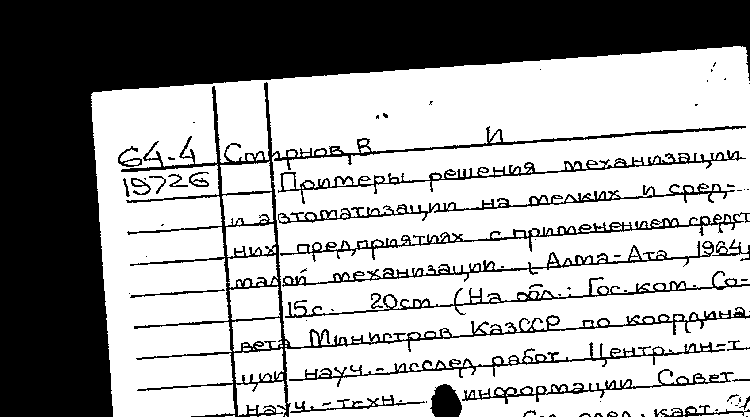 64-4 Смирнов, В И
19726 Примеры решения механизации
и автоматизации на мелких и сред-
них предприятиях с применением средст
малой механизации. [Алма-Ата, 1964,
15с. 20см. (На обл.: Гос. ком. Со-
вета Министров КазССР по координа-
ции науч.-исслед. работ. Центр. ин-т
науч.-техн. информации Совет
след. карт.